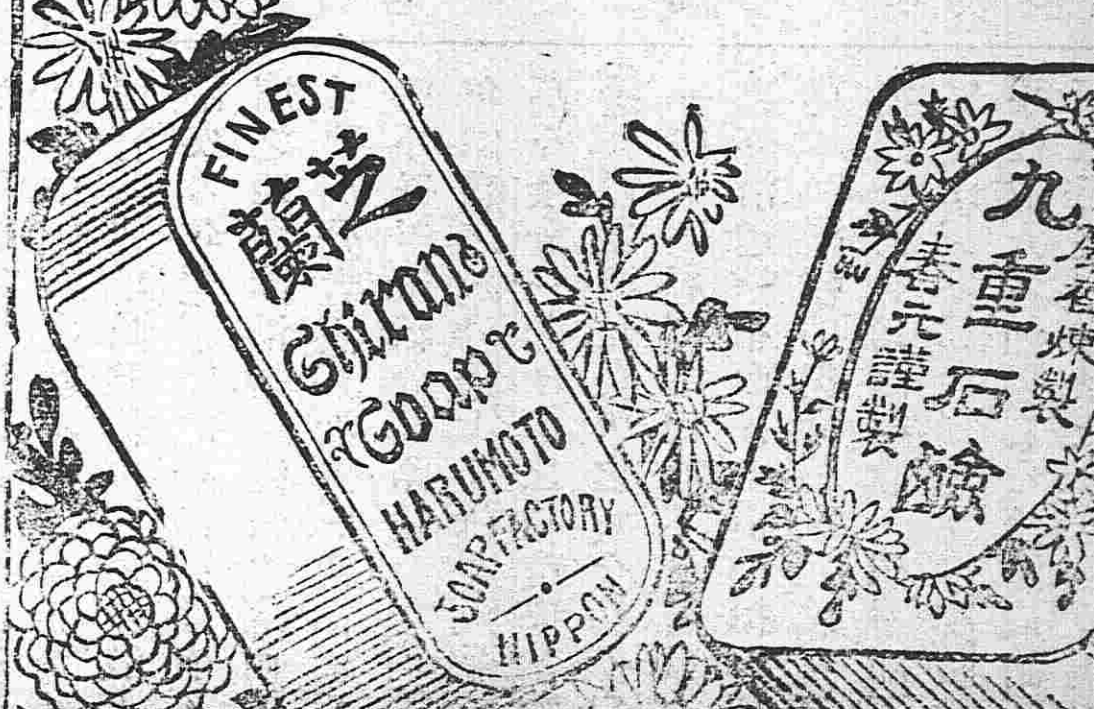 FINEST
芝蘭
Shiran
Soap
HARUMOTO
SOAPFACTORY
NIPPON
香煉製
九重石鹼
春元謹製